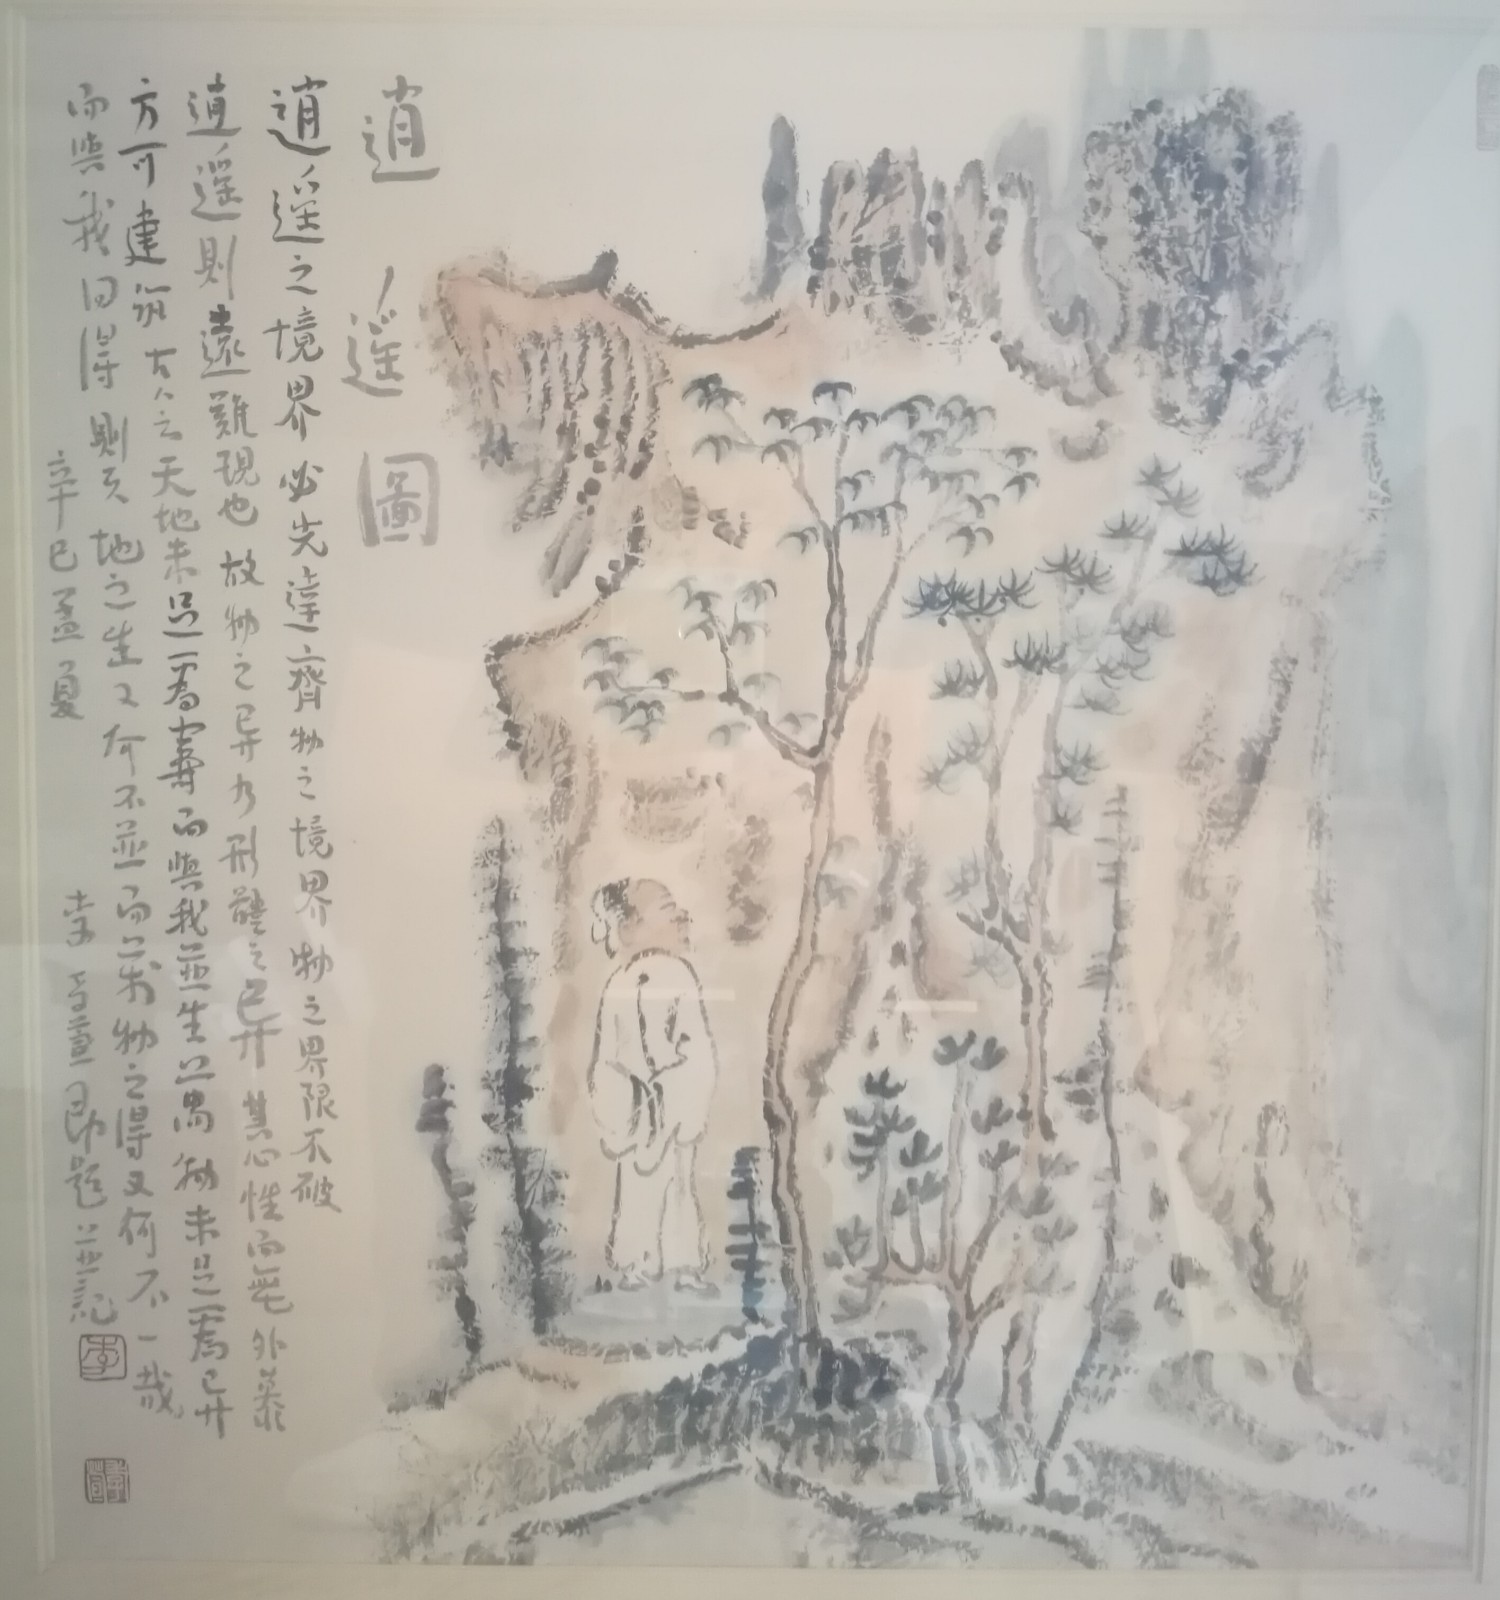 逍遥圖
逍遥之境界必先達齊物之境界物之界限不破
逍遥則遠難現也故物之异乃形體之异慧心性而無外慕
方可建筑古人云天地未足為壽而與我並生萬物未足為异
而與我同得則天地之生又何不並而萬物之得又何不一哉
辛巳孟夏 李 題並記
李